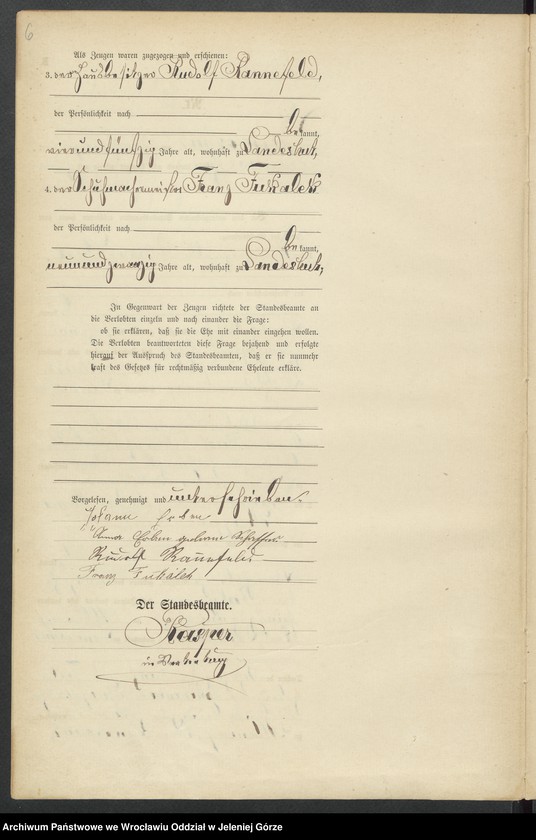 6
Als Zeugen waren zugezogen und erschienen:
3. der Hausbesitzer Rudolf Rannefeld,
der Persönlichkeit nach
be kannt,
vierundfünfzig Jahre alt, wohnhaft zu Landeshut,
4. der Schuhmachermeister Franz Fukalek
der Persönlichkeit nach
be kannt,
neunundzwanzig Jahre alt, wohnhaft zu Landeshut,
In Gegenwart der Zeugen richtete der Standesbeamte an
die Verlobten einzeln und nach einander die Frage:
ob sie erklären, daß sie die Ehe mit einander eingehen wollen.
Die Verlobten beantworteten diese Frage bejahend und erfolgte
hierauf der Ausspruch des Standesbeamten, daß er sie nunmehr
kraft des Gesetzes für rechtmäßig verbundene Eheleute erkläre.
Vorgelesen, genehmigt und unterschrieben.
Johann
geborene
Rudolf Rannefeld
Franz Fukalek
Der Standesbeamte.
Kasper
in Vertretung
Archiwum Państwowe we Wrocławiu Oddział w Jeleniej Górze